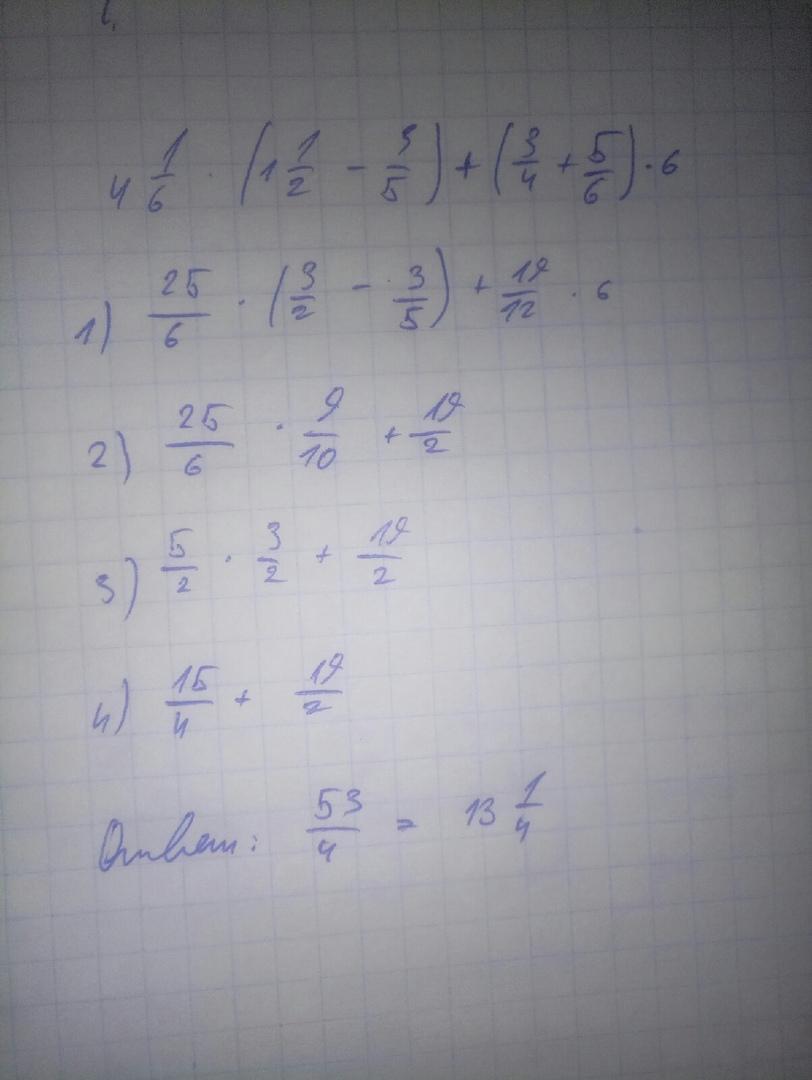 4 1/6 · (1 1/2 − 3/5) + (3/4 + 5/6) · 6
1) 25/6 · (3/2 − 3/5) + 19/12 · 6
2) 25/6 · 9/10 + 19/2
3) 5/2 · 3/2 + 19/2
4) 15/4 + 19/2
Ответ: 53/4 = 13 1/4